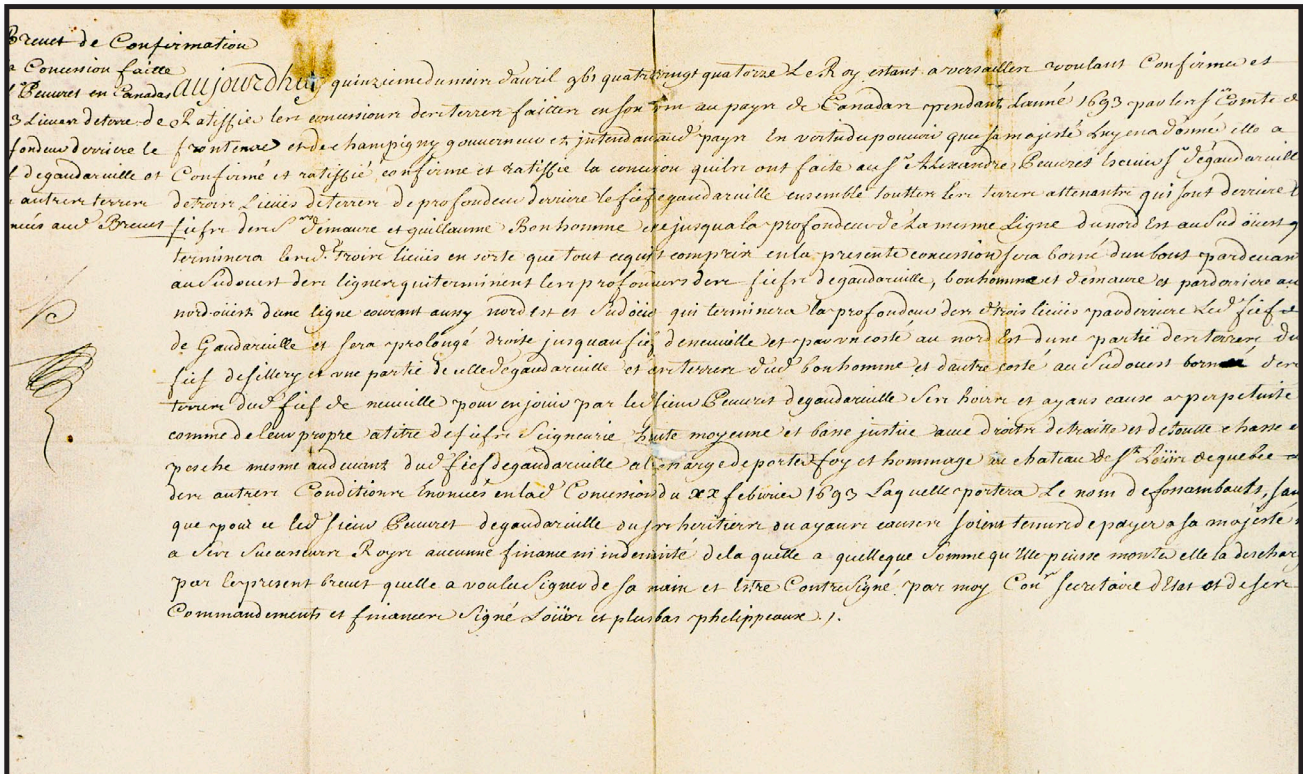 Brevet de Confirmation
a Concession faitte
Peuvret en Canadas
3 Lieues deterre de
fondeur derriere le
degaudarville et
autres terres
aud. Brevet
aujourdhuy quinziemedumois d'avril gbi quatrevingt quatorze Le Roy estant a versailles voulant Confirmer et
Ratiffier les concessions desterres faittes enson nom au pays de Canadas pendant Lanné 1693 par les Srs Comte de
frontenac et de champigny gouverneur et jntendant aud pays En vertudupouvoir que sa majesté Luy en a donné elle a
Confirmé et ratiffié, confirme et Ratiffie la concession quils ont faite au Sr Alexandre Peuvret Escuier Sr degaudarville
detrois Lieües deterres de profondeur derriere le fief egaudarville ensemble touttes les terres attenants qui sont derriere l
fiefs des Srs demaure et guillaume Bonhomme jusqua la profondeur de La mesme Ligne du nord Est au Sud öuest q
terminera lesd. Trois lieües en sorte que tout cequi est compris en la presente concession sera borné dun bout pardevant
au Sudouest des lignes qui terminent les profondeurs des fiefs degaudarville, bonhomme et demaure et parderriere au
nordouest dune ligne courant aussy nord est et Sudoüe qui terminera la profondeur des trois lieües parderriere Led fief
de Gaudarville et sera prolongé droite jusquau fief deneuville et par un costé au nord Est dune partie desterres du
fief desillery et une partie de celle degaudarville et des terres dud bonhomme et dautre costé au Sudouest borné des
terres dud fief de neuville pour en jouir par led sieur Peuvret degaudarville Ses hoirs et ayans cause a perpetuité
comme de leur propre atitre de fiefs Seigneurie haute moyenne et basse justice avec droits de traitte et detoutte chasse et
pesche mesme audevant dud fief degaudarville a la charge de porter foy et hommage au chateau de St Loüis dequebec
des autres Conditions Enoncés en lad Concession du xx febvrier 1693 Laquelle portera Le nom de fossambault, san
que pour ce led sieur Peuvret degaudarville ou ses heritiers ou ayans causes soient tenus de payer a sa majesté
a Ses Successeurs Roys aucunne finance ni indemnité de la quelle a quelleque Somme qu'Elle puisse monter elle la deschar
par le present brevet quelle a voulu Signer de sa main et Estre ContreSigné par moy Conr Secretaire dEtat et de ses
Commandements et finances Signé Loüis et plus bas phelippeaux ./.